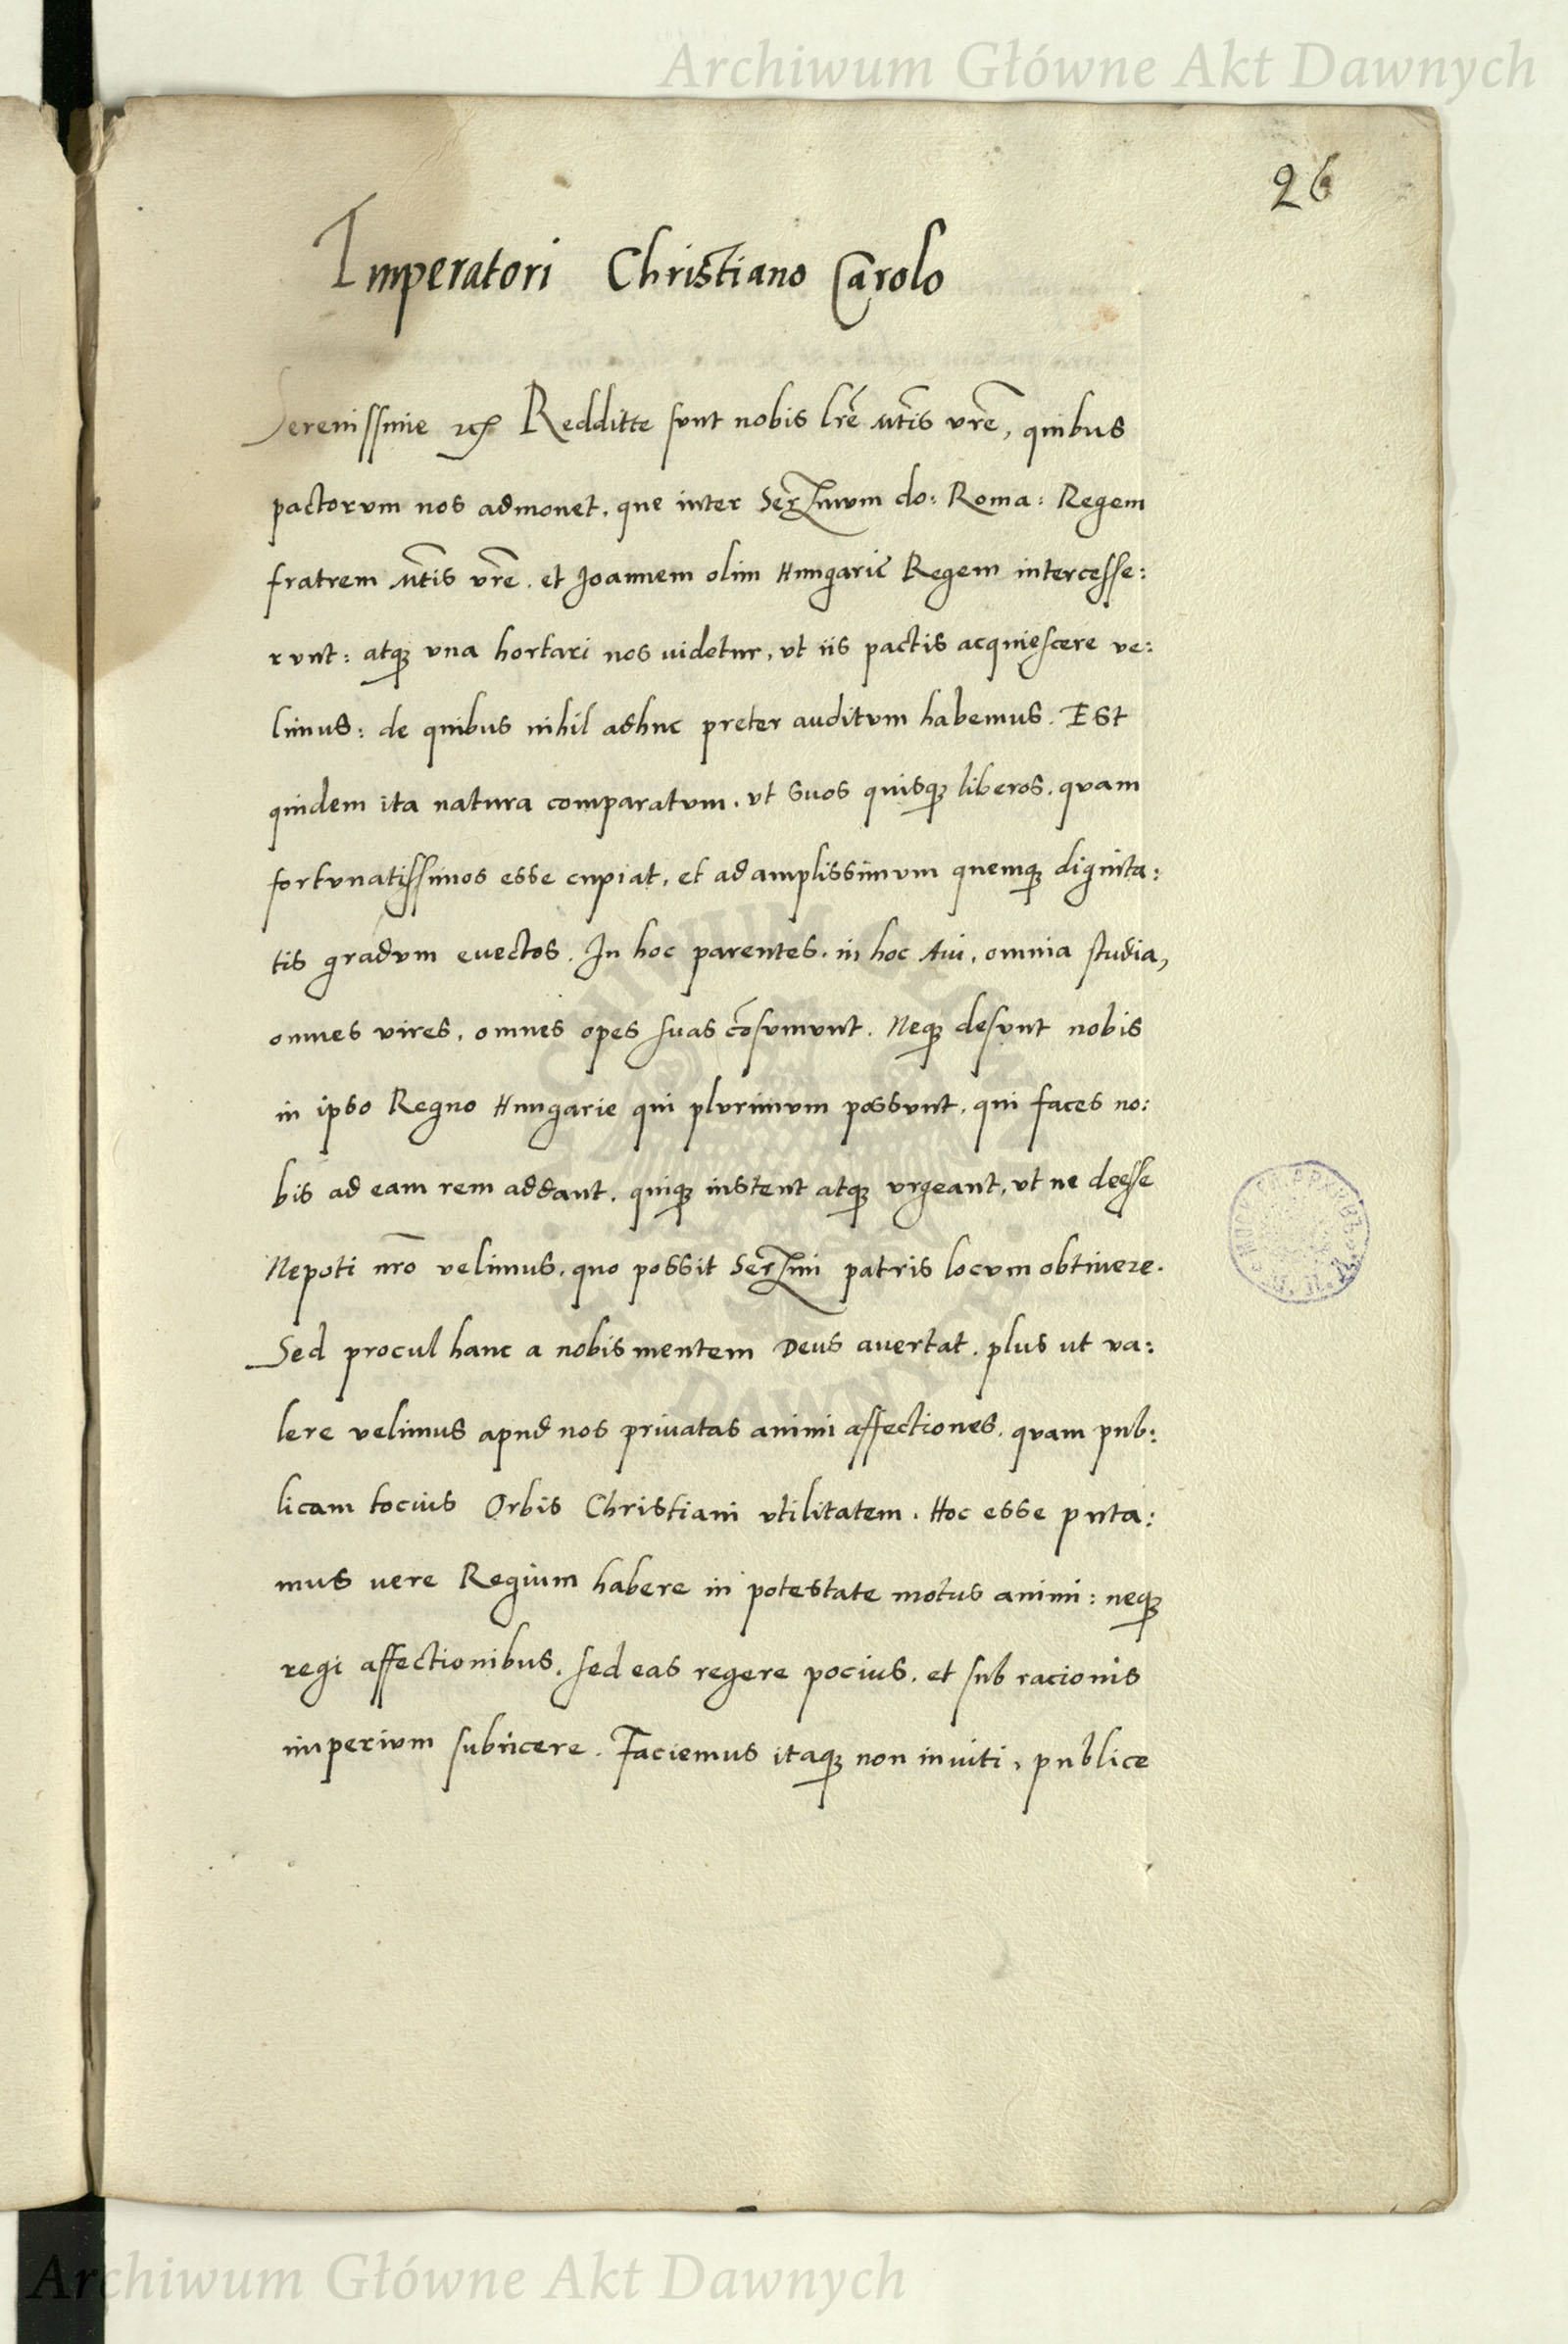 Archiwum Główne Akt Dawnych
26
Imperatori Christiano Carolo
Serenissime etc Redditte sunt nobis lr̃e Mtis vr̃e, quibus
pactorum nos admonet, que inter Serenmum do: Roma: Regem
fratrem Mtis vr̃e. et Joannem olim Hungarie Regem intercesse:
runt: atq; vna hortari nos uidetur, vt iis pactis acquiescere ve:
limus: de quibus nihil adhuc preter auditum habemus. Est
quidem ita natura comparatum, vt suos quisq; liberos, quam
fortunatissimos esse cupiat, et ad amplissimum quemq; dignita:
tis gradum euectos. In hoc parentes, in hoc Aui, omnia studia,
omnes vires, omnes opes suas cõsumunt. Neq; desunt nobis
in ipso Regno Hungarie qui plurimum possunt, qui faces no:
bis ad eam rem addant, quiq; instent atq; vrgeant, vt ne deesse
Nepoti nr̃o velimus, quo possit Serenmi patris locum obtinere.
Sed procul hanc a nobis mentem Deus auertat, plus ut va:
lere velimus apud nos priuatas animi affectiones, quam pub:
licam tocius Orbis Christiani vtilitatem. Hoc esse puta:
mus uere Regium habere in potestate motus animi: neq;
regi affectionibus, sed eas regere pocius, et sub racionis
imperium subiicere. Faciemus itaq; non inuiti, publice
Archiwum Główne Akt Dawnych